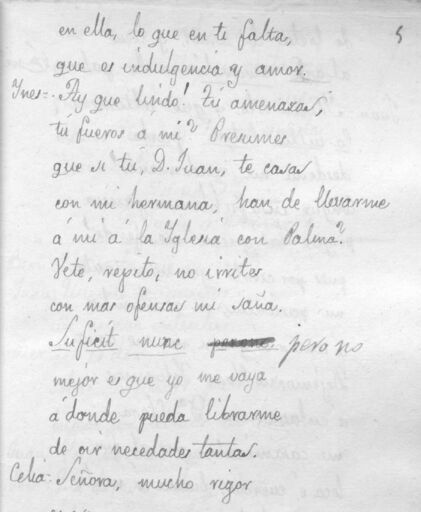 5
en ella, lo que en ti falta,
que es indulgencia y amor.
Ines=. Ay que lindo! Tú amenazas,
tú fueros á mi? Presumes
que si tú, D. Juan, te casas
con mi hermana, han de llevarme
á mi á la Iglesia con Palma?
Vete, repito, no irrites
con mas ofensas mi saña.
Suficit nunc perono pero no
mejór es que yo me vaya
á donde pueda librarme
de oir necedades tantas.
Celia: Señora, mucho rigor